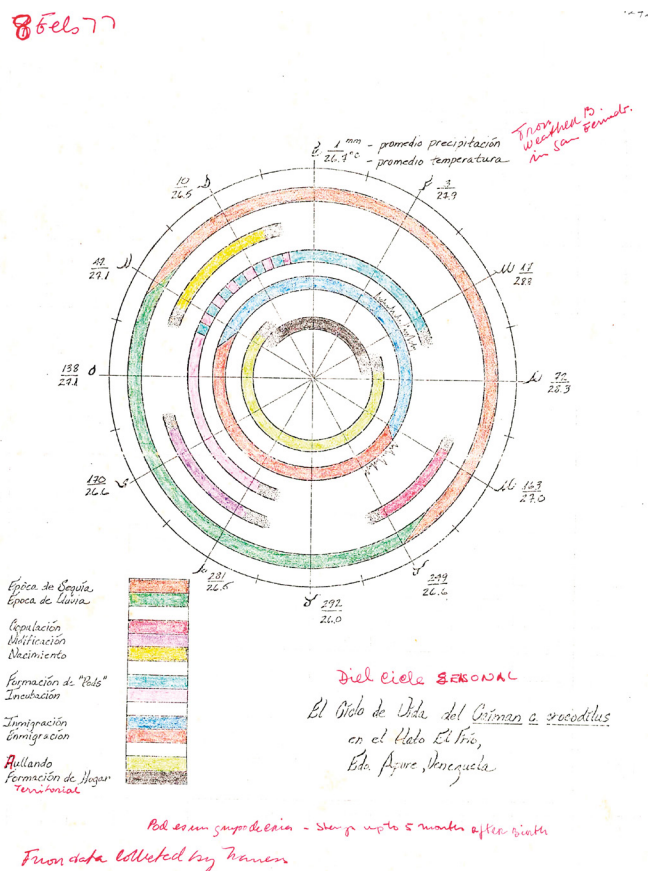 8 Feb 77
E 1 mm - promedio precipitación
26.7 °C - promedio temperatura
From
weather B.
in San Fernando.
F 3
27.9
M 17
28.8
A 72
28.3
M 163
27.0
J 249
26.6
J 292
26.0
A 281
26.5
S 170
26.6
O 138
27.1
N 42
27.1
D 10
26.5
Época de Sequía
Época de Lluvia
Copulación
Nidificación
Nacimiento
Formación de "Pods"
Incubación
Inmigración
Enmigración
Aullando
Formación de Hogar
Territorial
Diel cicle SEASONAL
El Ciclo de Vida del Caiman c. crocodilus
en el Hato El Frío,
Edo. Apure, Venezuela
Pod es un grupo de crias - stay up to 5 months after birth
From data collected by